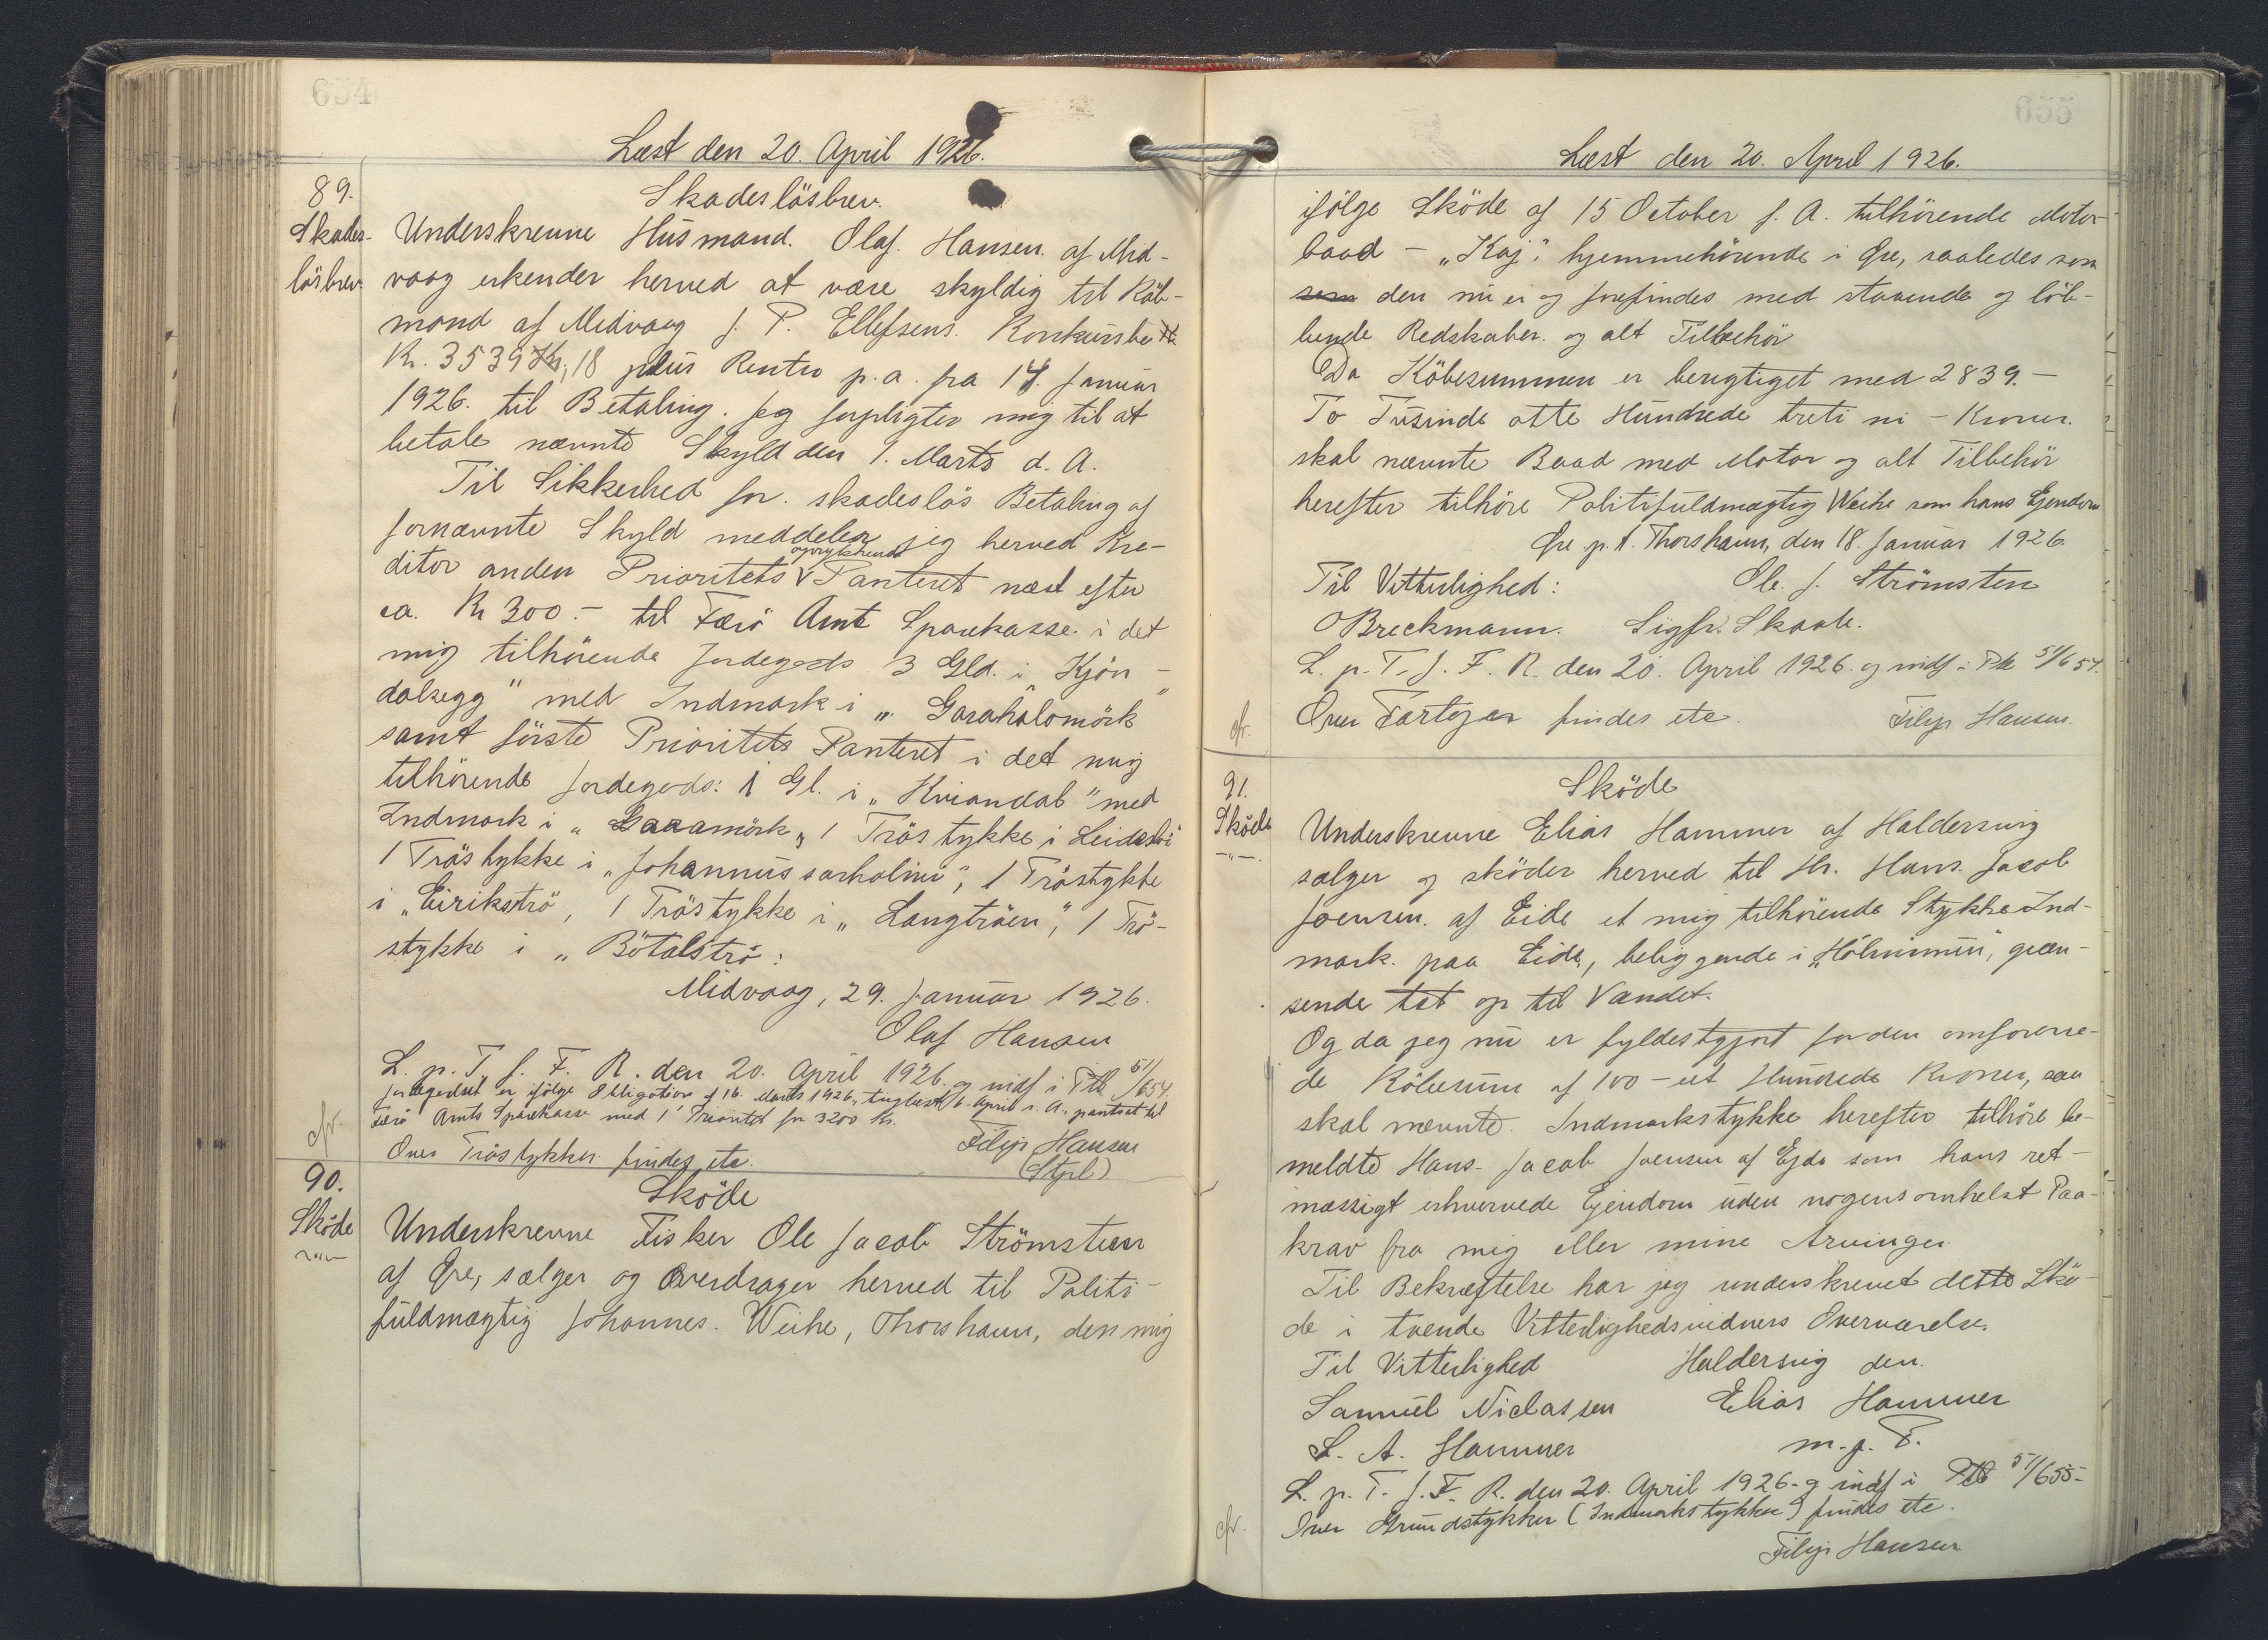 654
Læst den 20. April 1926.
89.
Skades-
lösbrev.
Skadeslösbrev.
Underskrevne Husmand. Olaf. Hansen. af Mid-
vaag erkender herved at være skyldig til Köb-
mand af Midvaag J. P. Ellefsens. Konkursbo
Kr. 3539 Kr, 18 plus Renter p.a. fra 14. Januar
1926. til Betaling. Jeg forpligter mig til at
betale nævnte Skyld den 1. Marts d. A.
Til Sikkerhed for. skadeslös Betaling af
fornævnte Skyld meddeler jeg herved Kre-
ditor anden Prioritets oprykkende Panteret næst efter
ca. Kr 300.- til Færö Amt Sparekasse i det
mig tilhörende Jordegods 3 Gld. i „Kjön-
dalsegg" med Indmark i „Garahalomörk"
samt förste Prioritets Panteret i det mig
tilhörende Jordegods: 1 Gl. i „Kviandal" med
Indmark i „Garamörk„ 1 Tröstykke i
1 Tröstykke i „Johannusarholmi", 1 Tröstykke
i „Eirikströ, 1 Tröstykke i „Langtröen", 1 Trö-
stykke i „Bötalströ:
Midvaag, 29. Januar 1926.
Olaf Hansen
L. p. T. f. F. R. den 20. April 1926. og indf i Ptb 51/654.
Jordegodset er ifölge Obligation af 16. Marts 1926, tinglæst 6. April s. A. pantsat til
Færö Amts Sparekasse med 1' Prioritet for 3200 Kr.
cfr.
Over Tröstykker findes etc.
Filip Hansen
(Stpl)
90.
Sköde
-"-
Sköde
Underskrevne Fisker Ole Jacob Strömsten
af Öre, sælger og Overdrager herved til Politi-
fuldmægtig Johannes. Weihe, Thorshavn, den mig
655
Læst den 20. April 1926.
ifölge Sköde af 15 October f. A. tilhörende Motor-
baad - „Kaj". hjemmehörende i Öre, saaledes som
som den nu er og forefindes med staaende og löb-
bende Redskaber. og alt Tilbehör
Da Köbesummen er berigtiget med 2839.-
To Tusinde otte Hundrede treti ni - Kroner.
skal nævnte Baad med Motor og alt Tilbehör
herefter tilhöre Politifuldmægtig Weihe som hans Ejendom
Öre p. t. Thorshavn, den 18. Januar 1926.
Til Vitterlighed: Ole. J. Strömsten
O Breckmann. Sigfr. Skaale.
L. p. T. f. F. R. den 20. April 1926. og indf i Ptb 51/654.
cfr. Over Fartöjer findes etc. Filip Hansen.
91.
Sköde
-"-.
Sköde
Underskrevne Elias Hammer af Haldersvig
sælger og sköder herved til Hr. Hans. Jacob
Joensen. af Eide et mig tilhörende Stykke Ind-
mark. paa Eide, beliggende i „Hólminum", græn-
sende tæt op til Vandet.
Og da jeg nu er fyldestgjort for den omforene-
de Köbesum af 100 - et Hundrede Kroner, saa
skal nævnte. Indmarkstykke herefter tilhöre be-
meldte Hans - Jacob Joensen af Ejde som hans ret-
mæssigt erhvervede Ejendom uden nogensomhelst Paa-
krav fra mig eller mine Arvinger.
Til Bekræftelse har jeg underskrevet dette Skö-
de i tvende Vitterlighedsvidners Overværelse.
Til Vitterlighed Haldersvig den.
Samuel Niclassen Elias Hammer
S. A. Hammer m. p. F.
L. p. T. f. F. R. den 20. April 1926. og indf i Ptb 51/655-
cfr. Over Grundstykker (Indmarkstykker) findes etc.
Filip Hansen